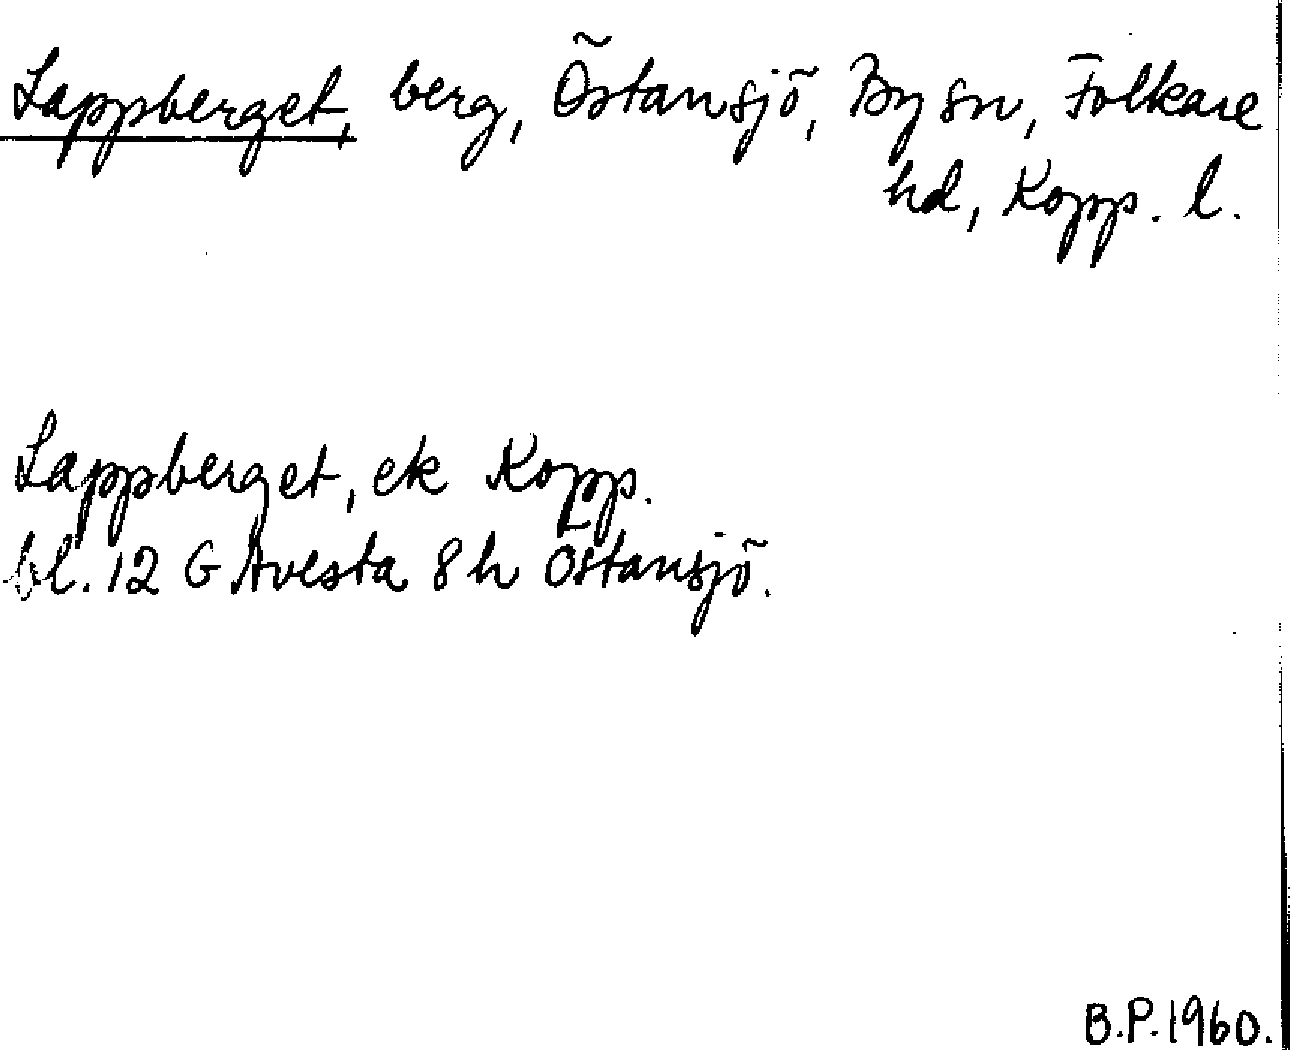 Lappberget, berg, Östansjö, By sn, Folkare
hd, Kopp. l.
Lappberget, ek Kopp.
bl. 12 G Avesta 8 h Östansjö.
B.P. 1960.